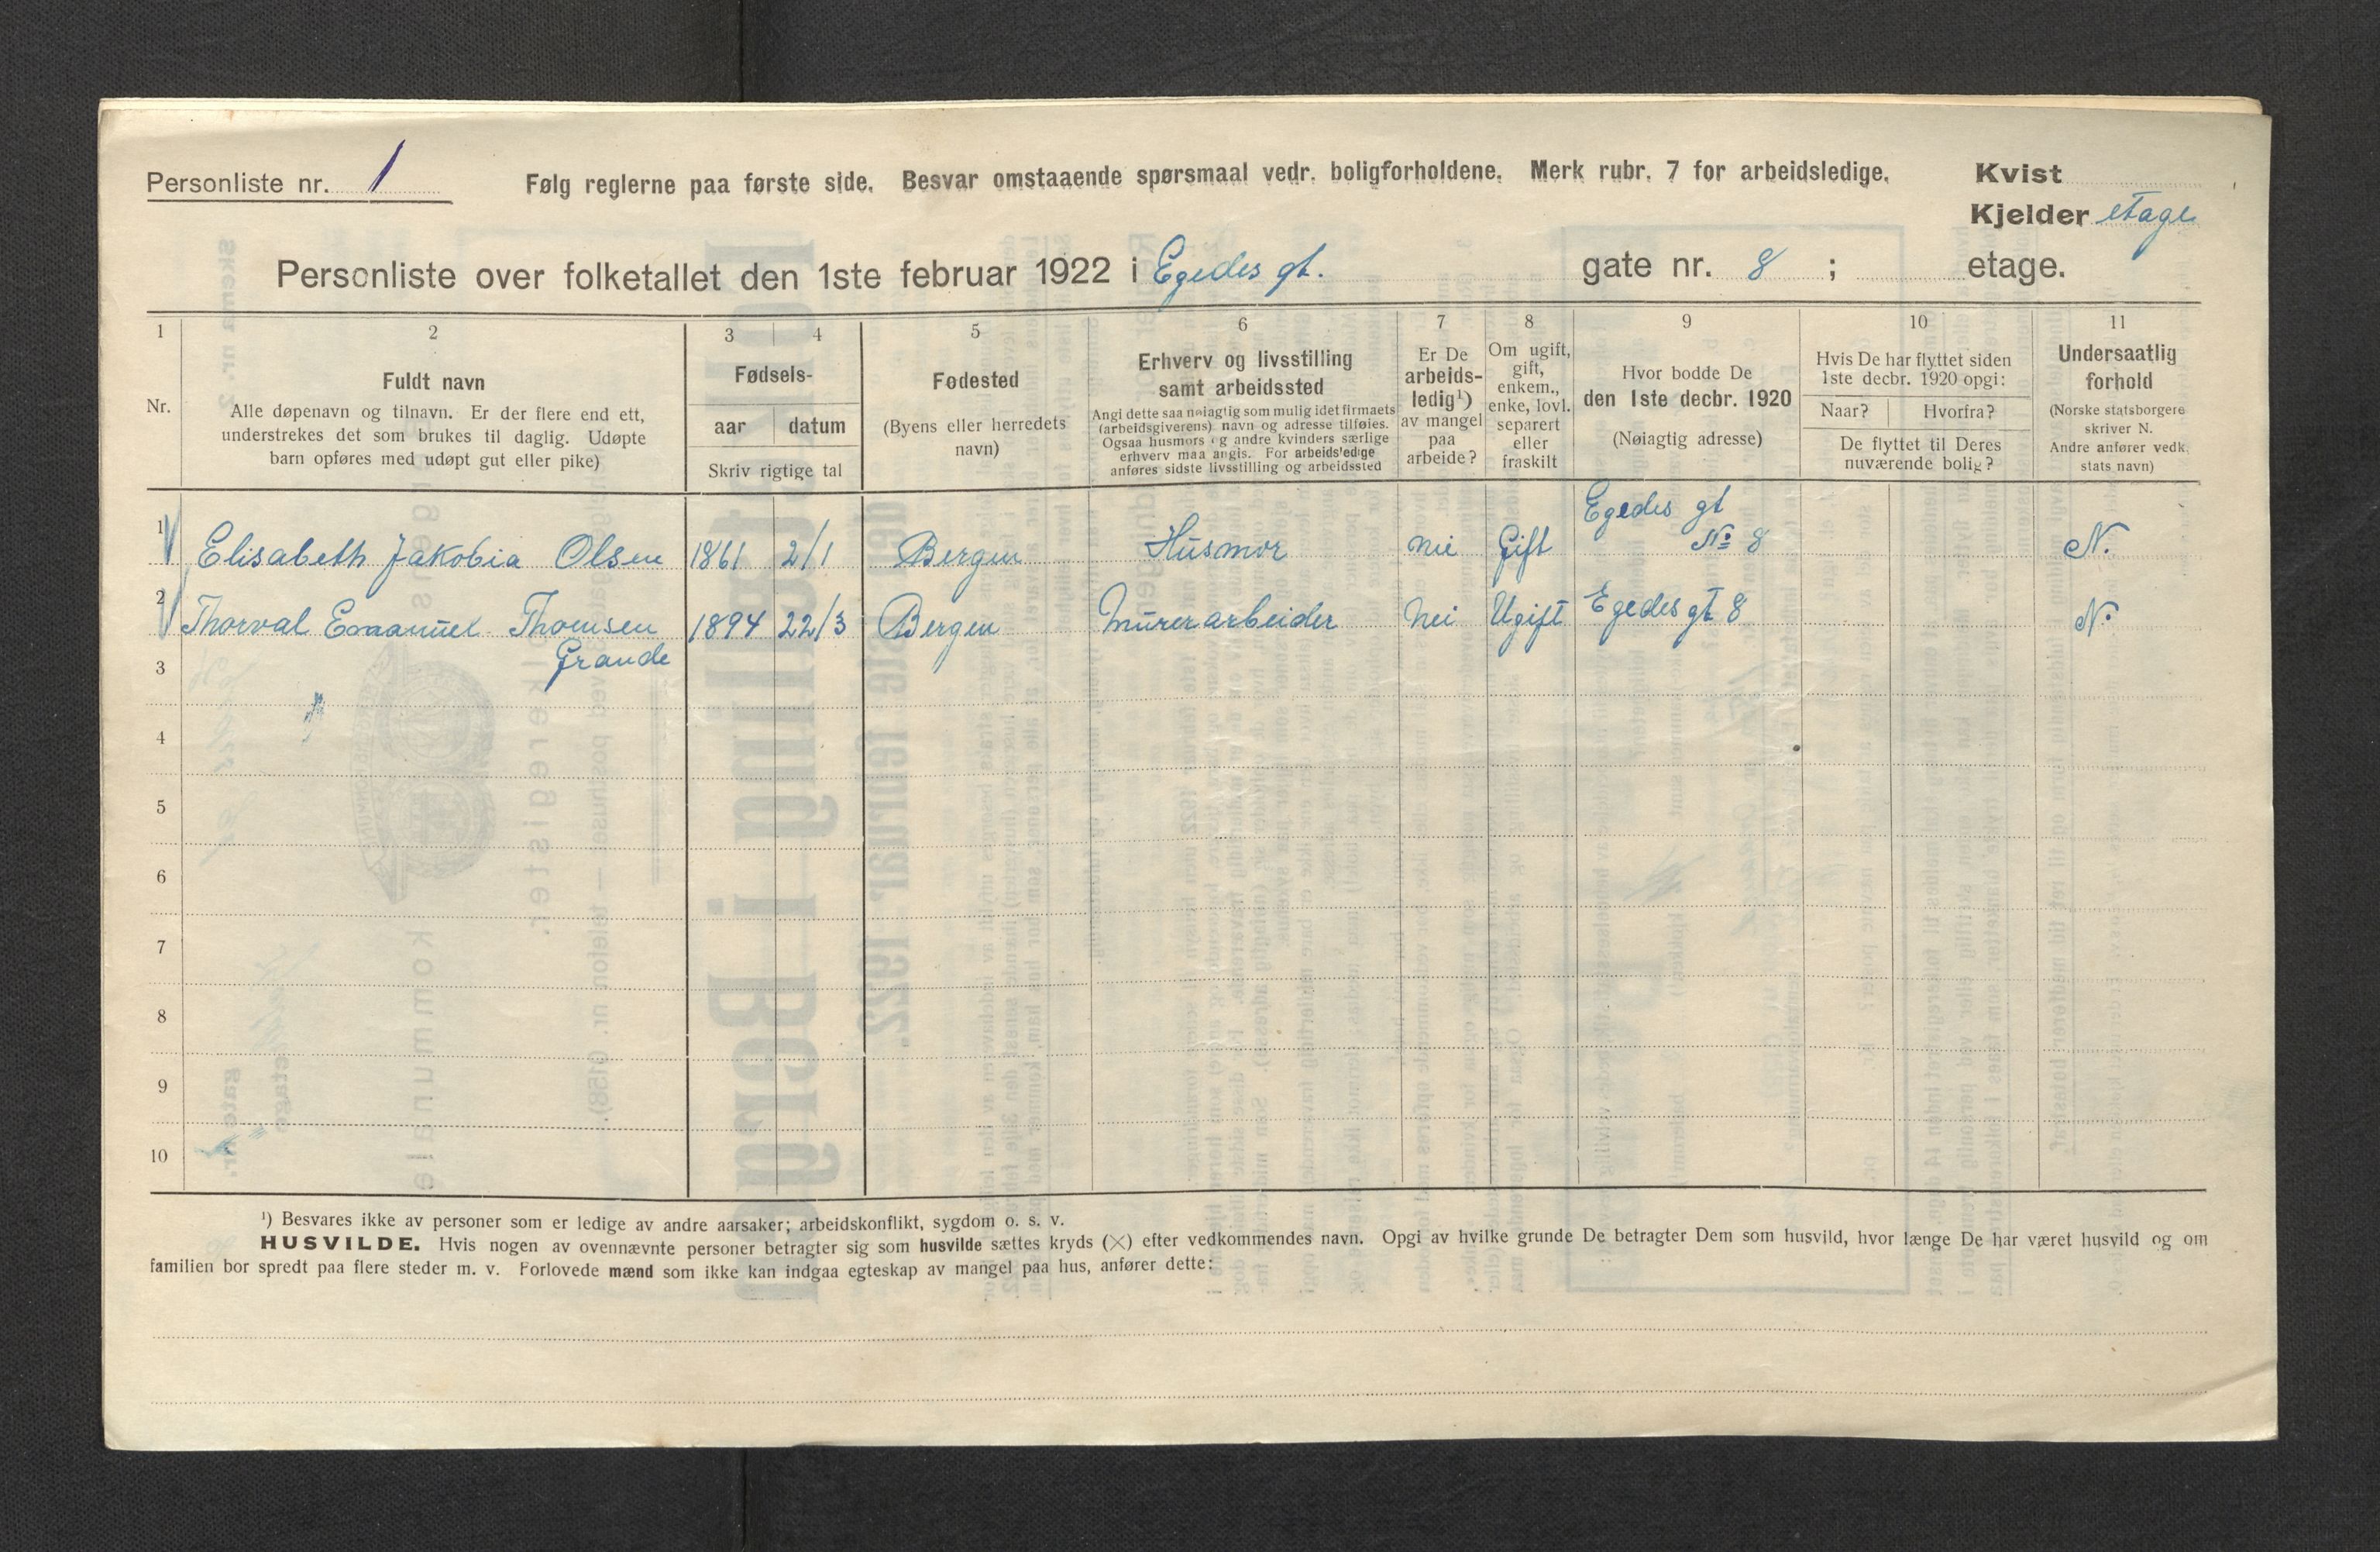 Personliste nr. 1
Følg reglerne paa første side. Besvar omstaaende spørsmaal vedr. boligforholdene. Merk rubr. 7 for arbeidsledige.
Kvist
Kjelder etage
Personliste over folketallet den 1ste februar 1922 i Egedes gt. gate nr. 8 ; etage.
1 2 3 4 5 6 7 8 9 10 11
Nr.
Fuldt navn
Alle døpenavn og tilnavn. Er der flere end ett,
understrekes det som brukes til daglig. Udøpte
barn opføres med udøpt gut eller pike)
Fødsels-
aar datum
Skriv rigtige tal
Fødested
(Byens eller herredets
navn)
Erhverv og livsstilling
samt arbeidssted
Angi dette saa nøiagtig som mulig idet firmaets
(arbeidsgiverens) navn og adresse tilføies.
Ogsaa husmors og andre kvinders særlige
erhverv maa angis. For arbeidsledige
anføres sidste livsstilling og arbeidssted
Er De
arbeids-
ledig¹)
av mangel
paa
arbeide?
Om ugift,
gift,
enkem.,
enke, lovl.
separert
eller
fraskilt
Hvor bodde De
den 1ste decbr. 1920
(Nøiagtig adresse)
Hvis De har flyttet siden
1ste decbr. 1920 opgi:
Naar? Hvorfra?
De flyttet til Deres
nuværende bolig?
Undersaatlig
forhold
(Norske statsborgere
skriver N.
Andre anfører vedk.
stats navn)
Egedes gt
1 Elisabeth Jakobia Olsen 1861 2/1 Bergen Husmor nei Gift No 8 N.
2 Thorval Emanuel Thomsen 1894 22/3 Bergen Murerarbeider Nei Ugift Egedes gt 8 N.
Grande
3
4
5
6
7
8
9
10
¹) Besvares ikke av personer som er ledige av andre aarsaker; arbeidskonflikt, sygdom o. s. v.
HUSVILDE. Hvis nogen av ovennævnte personer betragter sig som husvilde sættes kryds (×) efter vedkommendes navn. Opgi av hvilke grunde De betragter Dem som husvild, hvor længe De har været husvild og om
familien bor spredt paa flere steder m. v. Forlovede mænd som ikke kan indgaa egteskap av mangel paa hus, anfører dette: